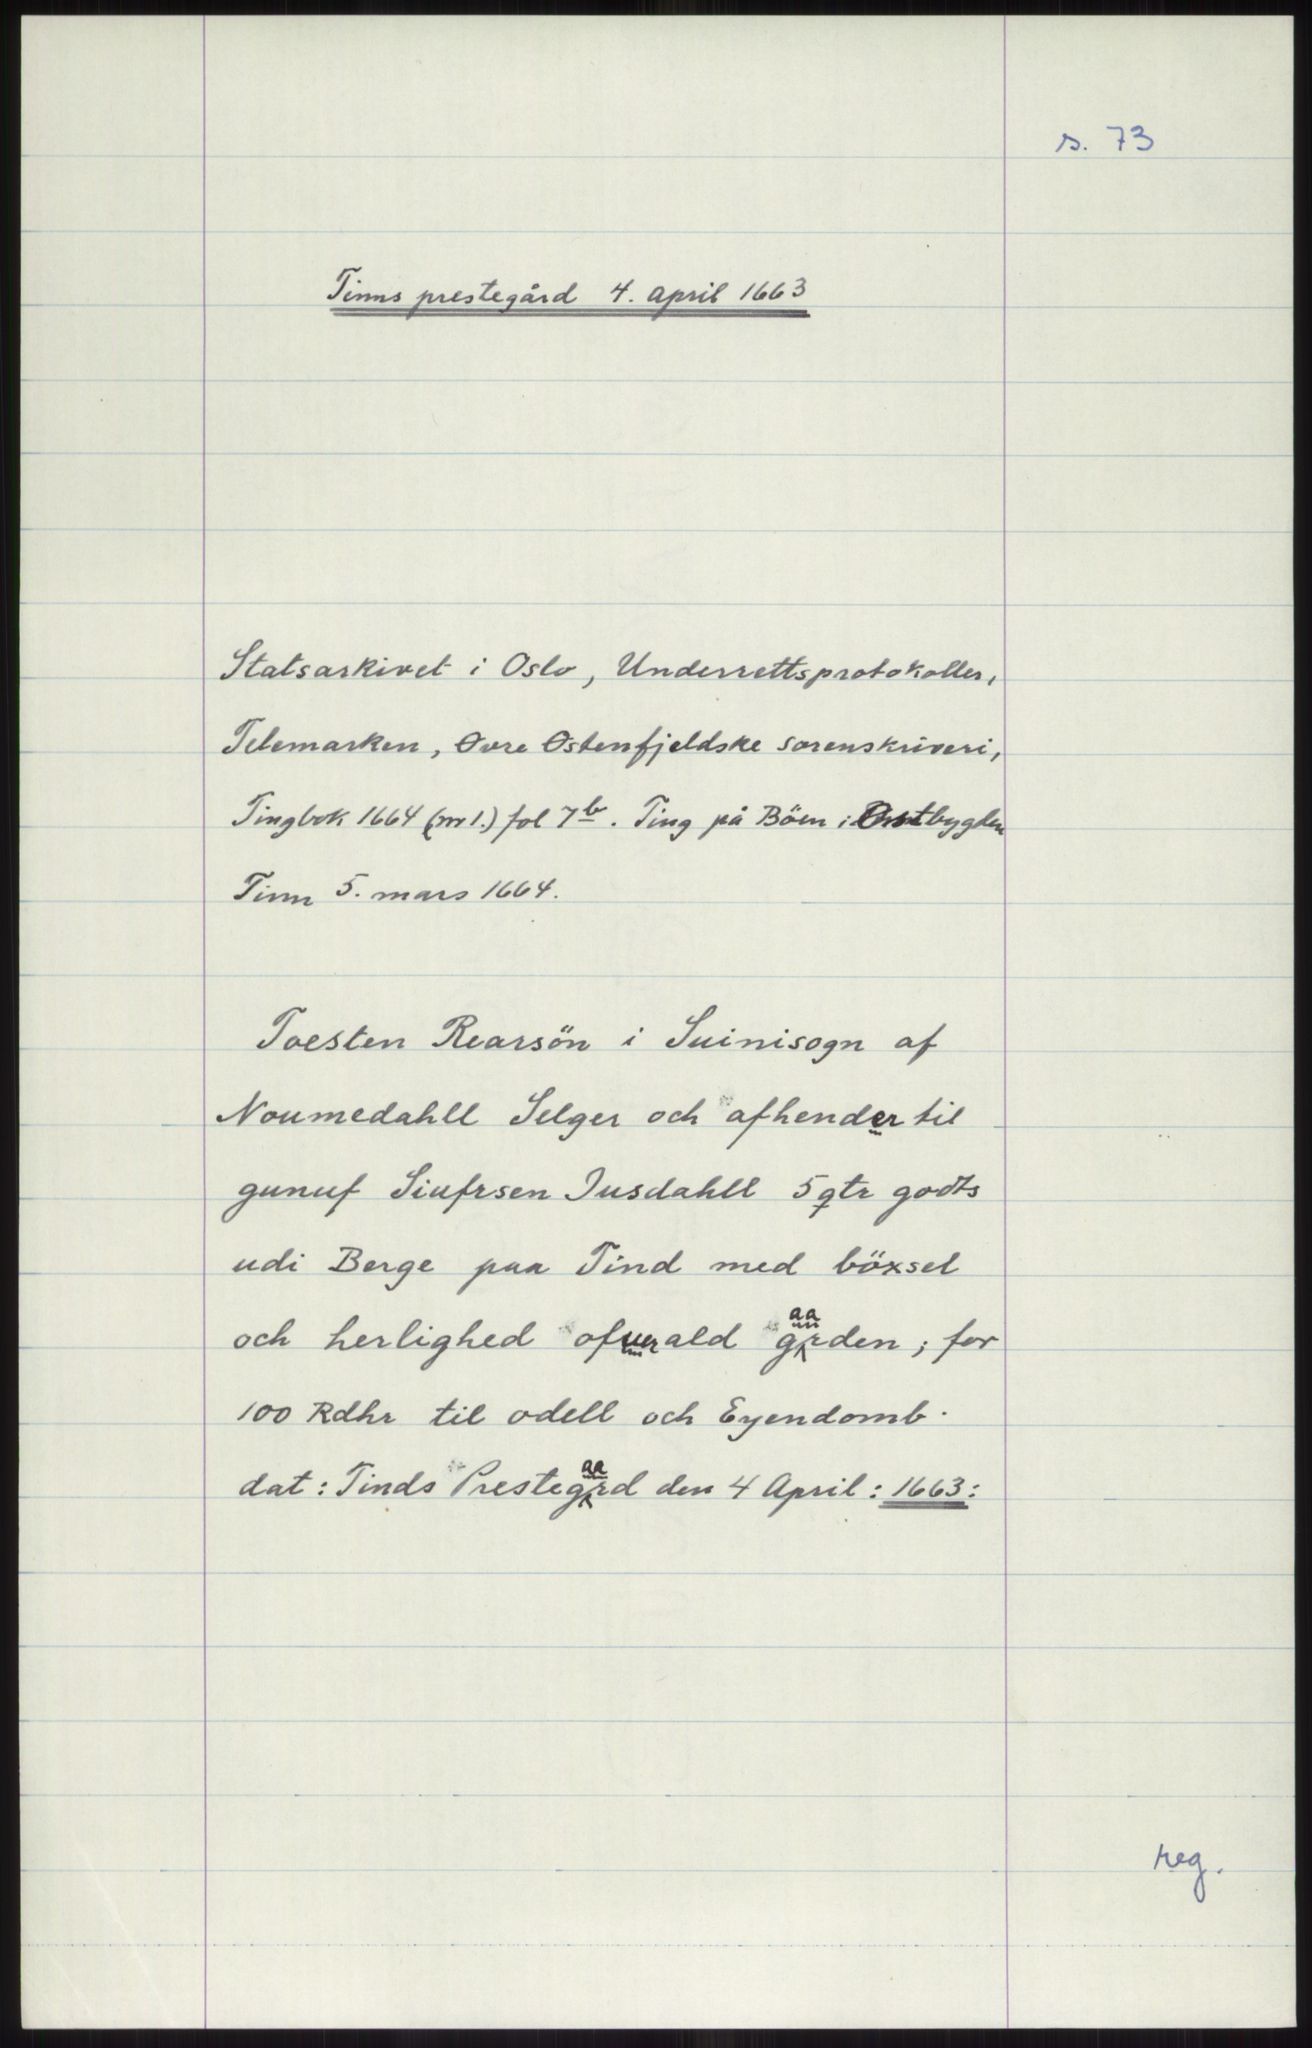 s. 73
Tinns prestegård 4. april 1663
Statsarkivet i Oslo, Underrettsprotokoller,
Telemarken, Øvre Østenfjeldske sorenskriveri,
Tingbok 1664 (nr 1.) fol 7b. Ting på Böen i Østbygden
Tinn 5. mars 1664.
Toesten Rearsön i Suinisogn af
Noumedahll Selger och afhender til
gunuf Siufrsen Jusdahll 5 qtr godts
udi Berge paa Tind med böxsel
och herlighed ofuer ald gaarden; for
100 Rdhr til odell och Eyendomb.
dat: Tinds Prestegaard den 4 April: 1663:
reg.